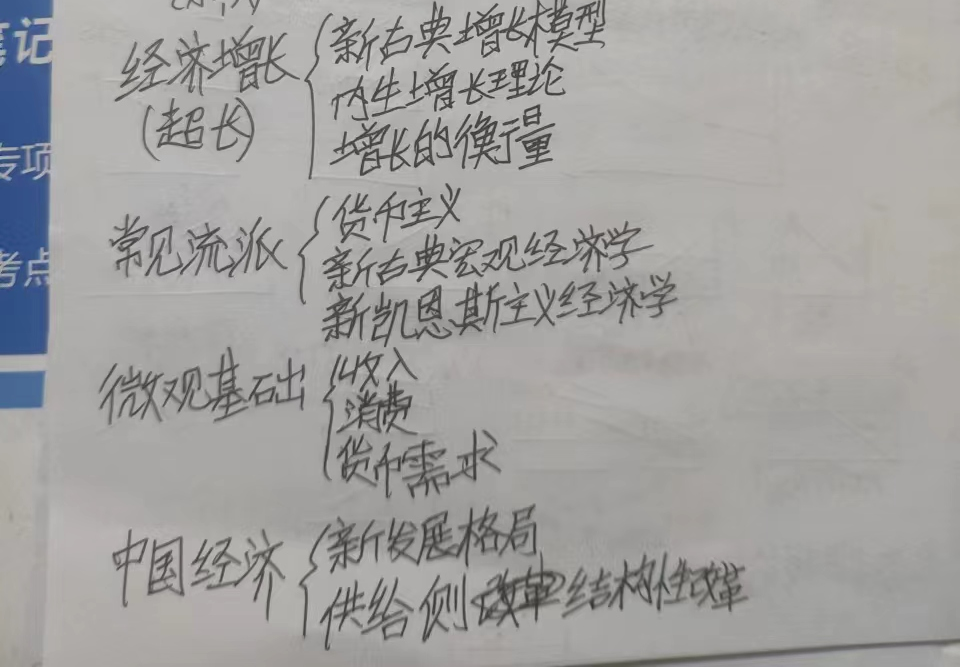 笔记
专项
考点
经济增长
(超长)
新古典增长模型
内生增长理论
增长的衡量
常见流派
货币主义
新古典宏观经济学
新凯恩斯主义经济学
微观基础
收入
消费
货币需求
中国经济
新发展格局
供给侧结构性改革